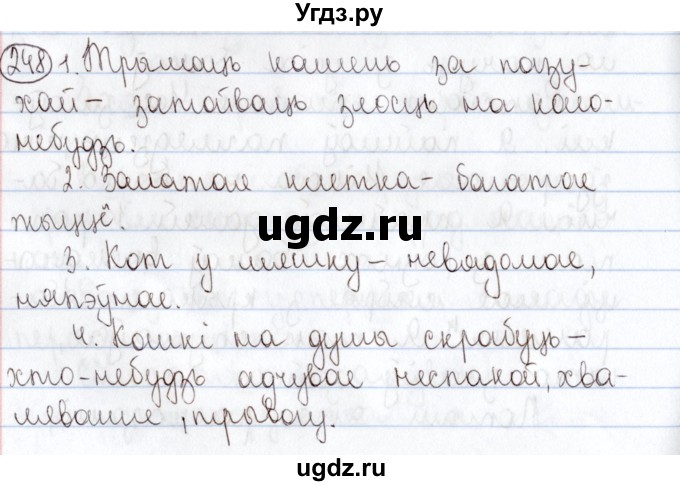 Угдз.ру
248 1. Трымаць камень за пазу-
хай – затойваць злосць на каго-
небудзь.
2. Залатая клетка – багатае
жыццё.
3. Кот у мяшку – невядомае,
няпэўнае.
ugdz.ru
4. Кошкі на душы скрабуць –
хто-небудзь адчувае неспакой, хва-
ляванне, трывогу.
ugdz.ru